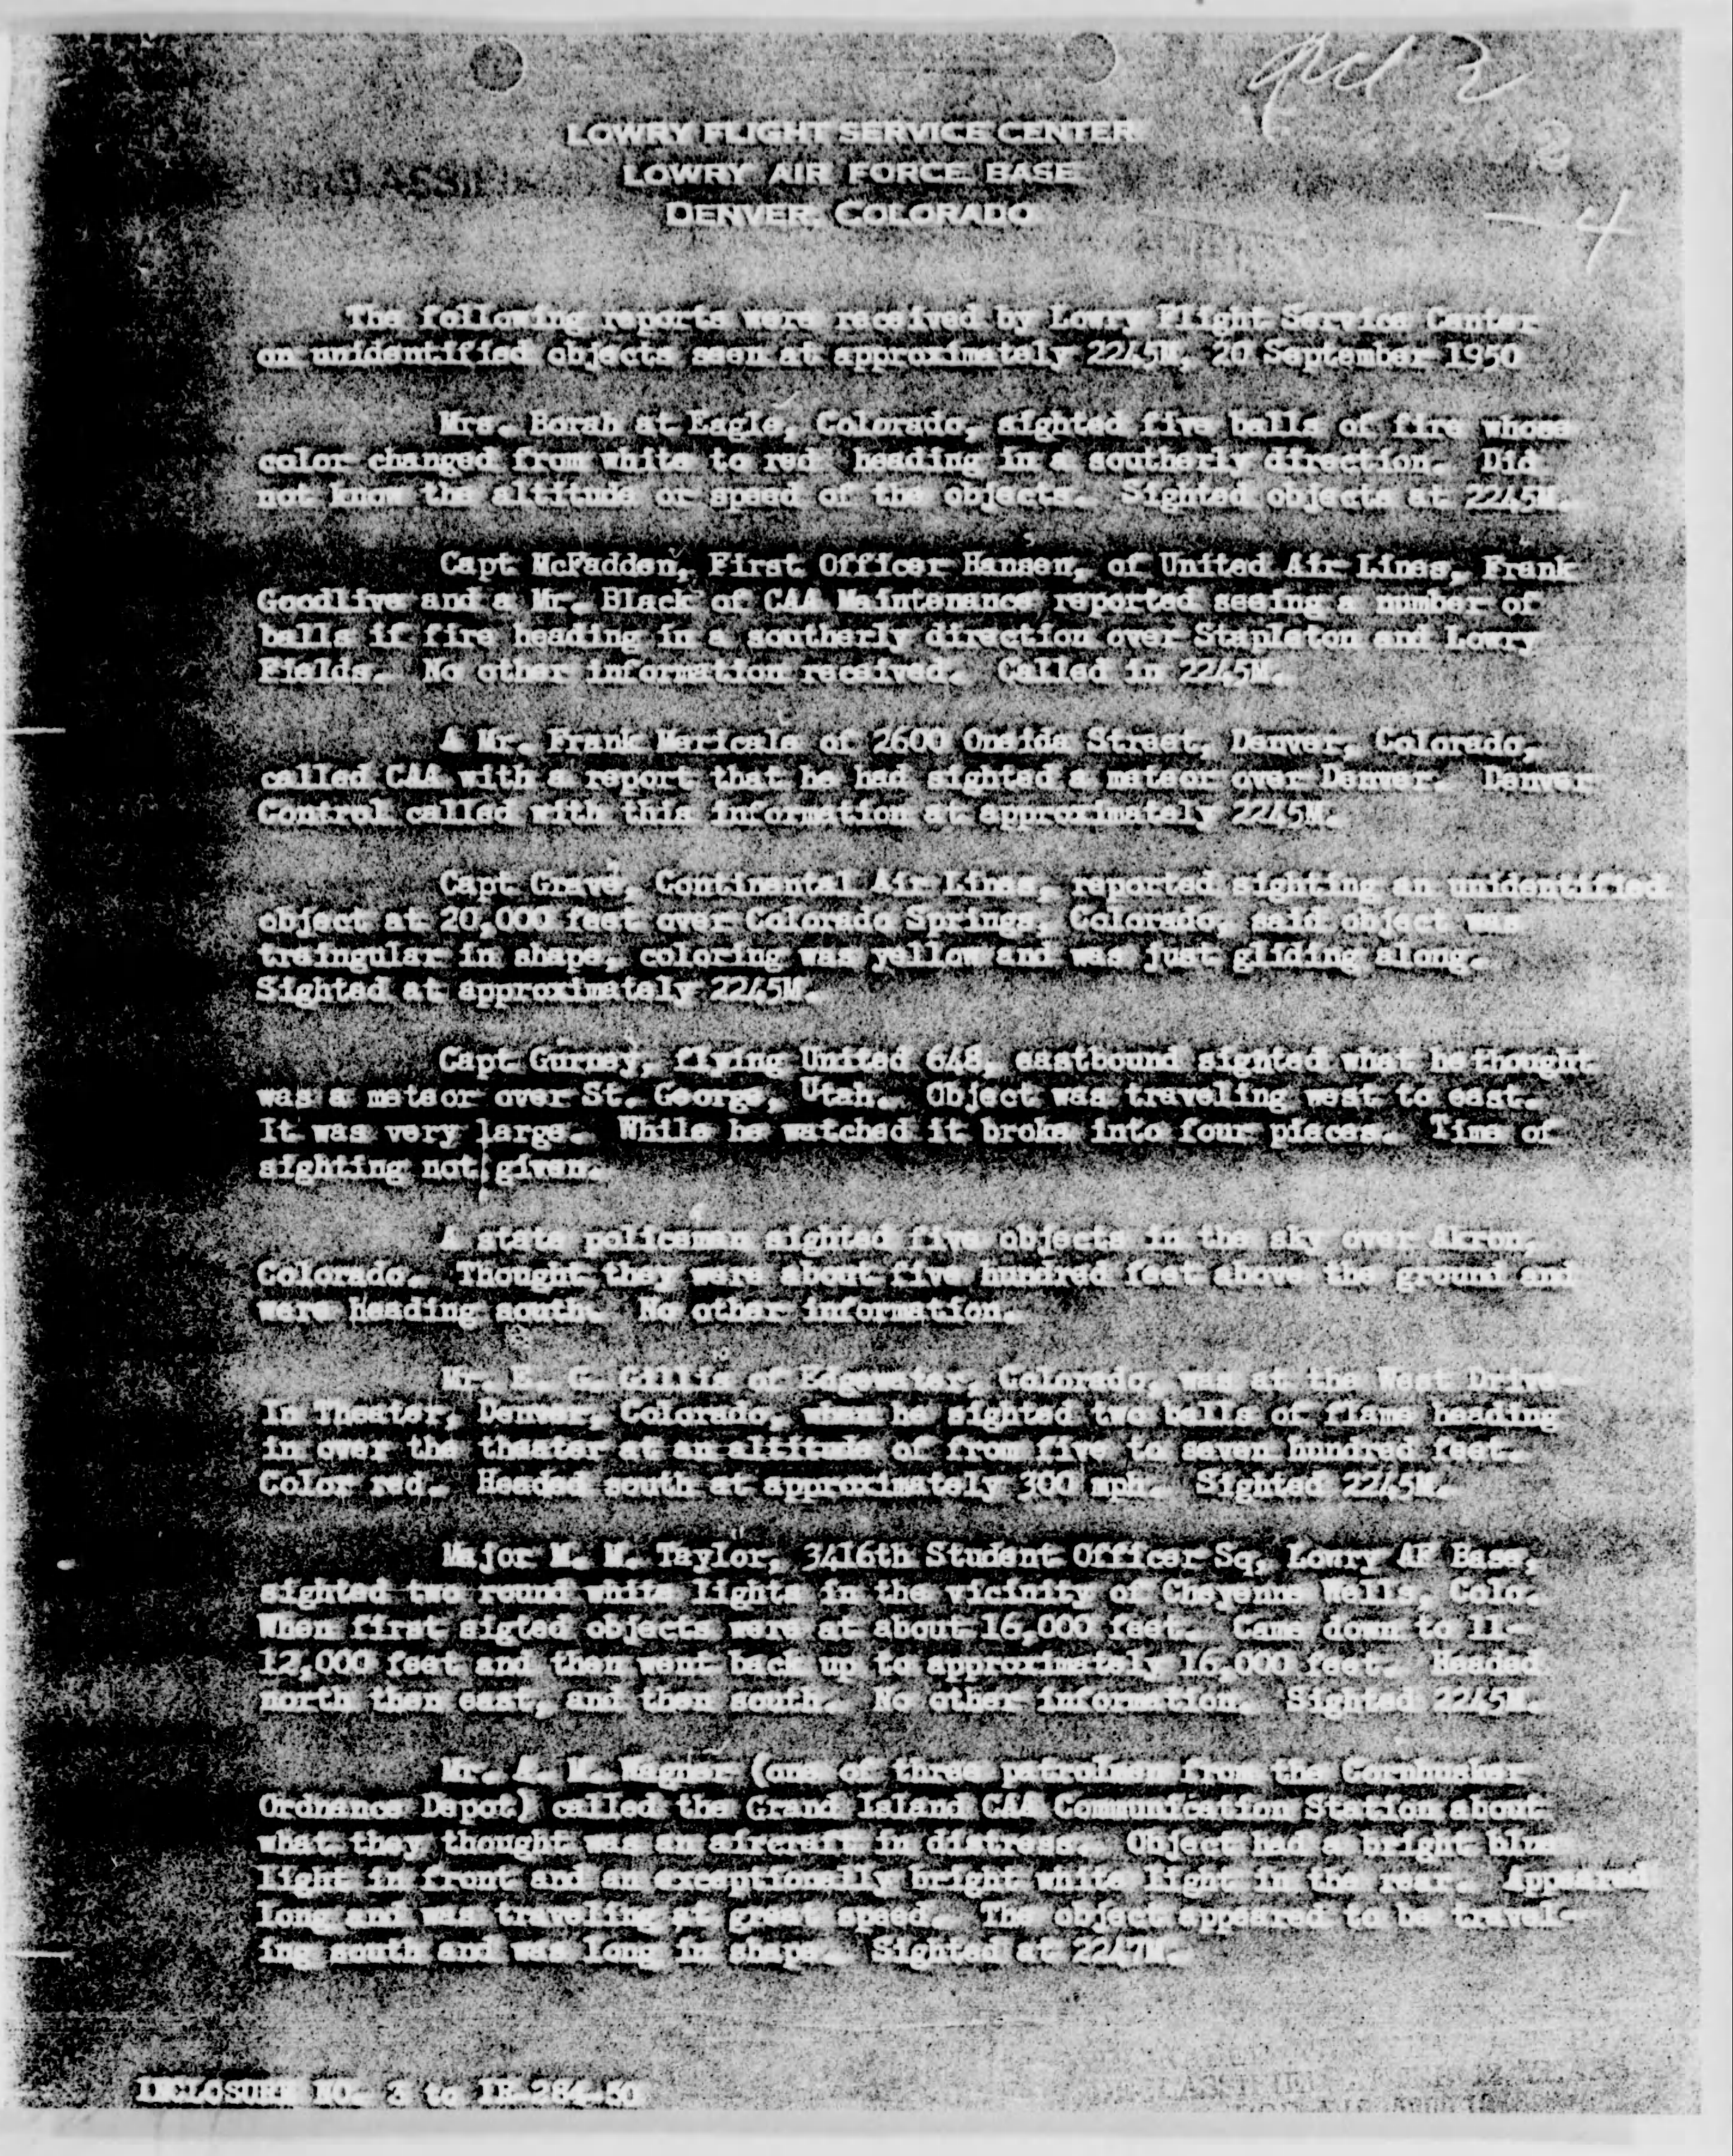 2
LOWRY FLIGHT SERVICE CENTER
LOWRY AIR FORCE BASE
DENVER, COLORADO
2
4
The following reports were received by Lowry Flight Service Center
on unidentified objects seen at approximately 2245M, 20 September 1950
Mrs. Borah at Eagle, Colorado, sighted five balls of fire whose
color changed from white to red heading in a southerly direction. Did
not know the altitude or speed of the objects. Sighted objects at 2245M.
Capt McFadden, First Officer Hansen, of United Air Lines, Frank
Goodlive and a Mr. Black of CAA Maintenance reported seeing a number of
balls if fire heading in a southerly direction over Stapleton and Lowry
Fields. No other information received. Called in 2245M.
A Mr. Frank Maricale of 2600 Oneida Street, Denver, Colorado,
called CAA with a report that he had sighted a meteor over Denver. Denver
Control called with this information at approximately 2245M.
Capt Grave, Continental Air Lines, reported sighting an unidentified
object at 20,000 feet over Colorado Springs, Colorado, said object was
traingular in shape, coloring was yellow and was just gliding along.
Sighted at approximately 2245M.
Capt Gurney, flying United 648, eastbound sighted what he thought
was a meteor over St. George, Utah. Object was traveling west to east.
It was very large. While he watched it broke into four pieces. Time of
sighting not given.
A state policeman sighted five objects in the sky over Akron,
Colorado. Thought they were about five hundred feet above the ground and
were heading south. No other information.
Mr. E. G. Gillis of Edgewater, Colorado, was at the West Drive-
In Theater, Denver, Colorado, when he sighted two balls of flame heading
in over the theater at an altitude of from five to seven hundred feet.
Color red. Headed south at approximately 300 mph. Sighted 2245M.
Major M. M. Taylor, 3416th Student Officer Sq, Lowry AF Base,
sighted two round white lights in the vicinity of Cheyenne Wells, Colo.
When first sigted objects were at about 16,000 feet. Came down to 11-
12,000 feet and then went back up to approximately 16,000 feet. Headed
north then east, and then south. No other information. Sighted 2245M.
Mr. A. M. Wagner (one of three patrolmen from the Cornhusker
Ordnance Depot) called the Grand Island CAA Communication Station about
what they thought was an aircraft in distress. Object had a bright blue
light in front and an exceptionally bright white light in the rear. Appeared
long and was traveling at great speed. The object appeared to be travel-
ing south and was long in shape. Sighted at 2247M.
INCLOSURE NO. 3 to IR-284-50